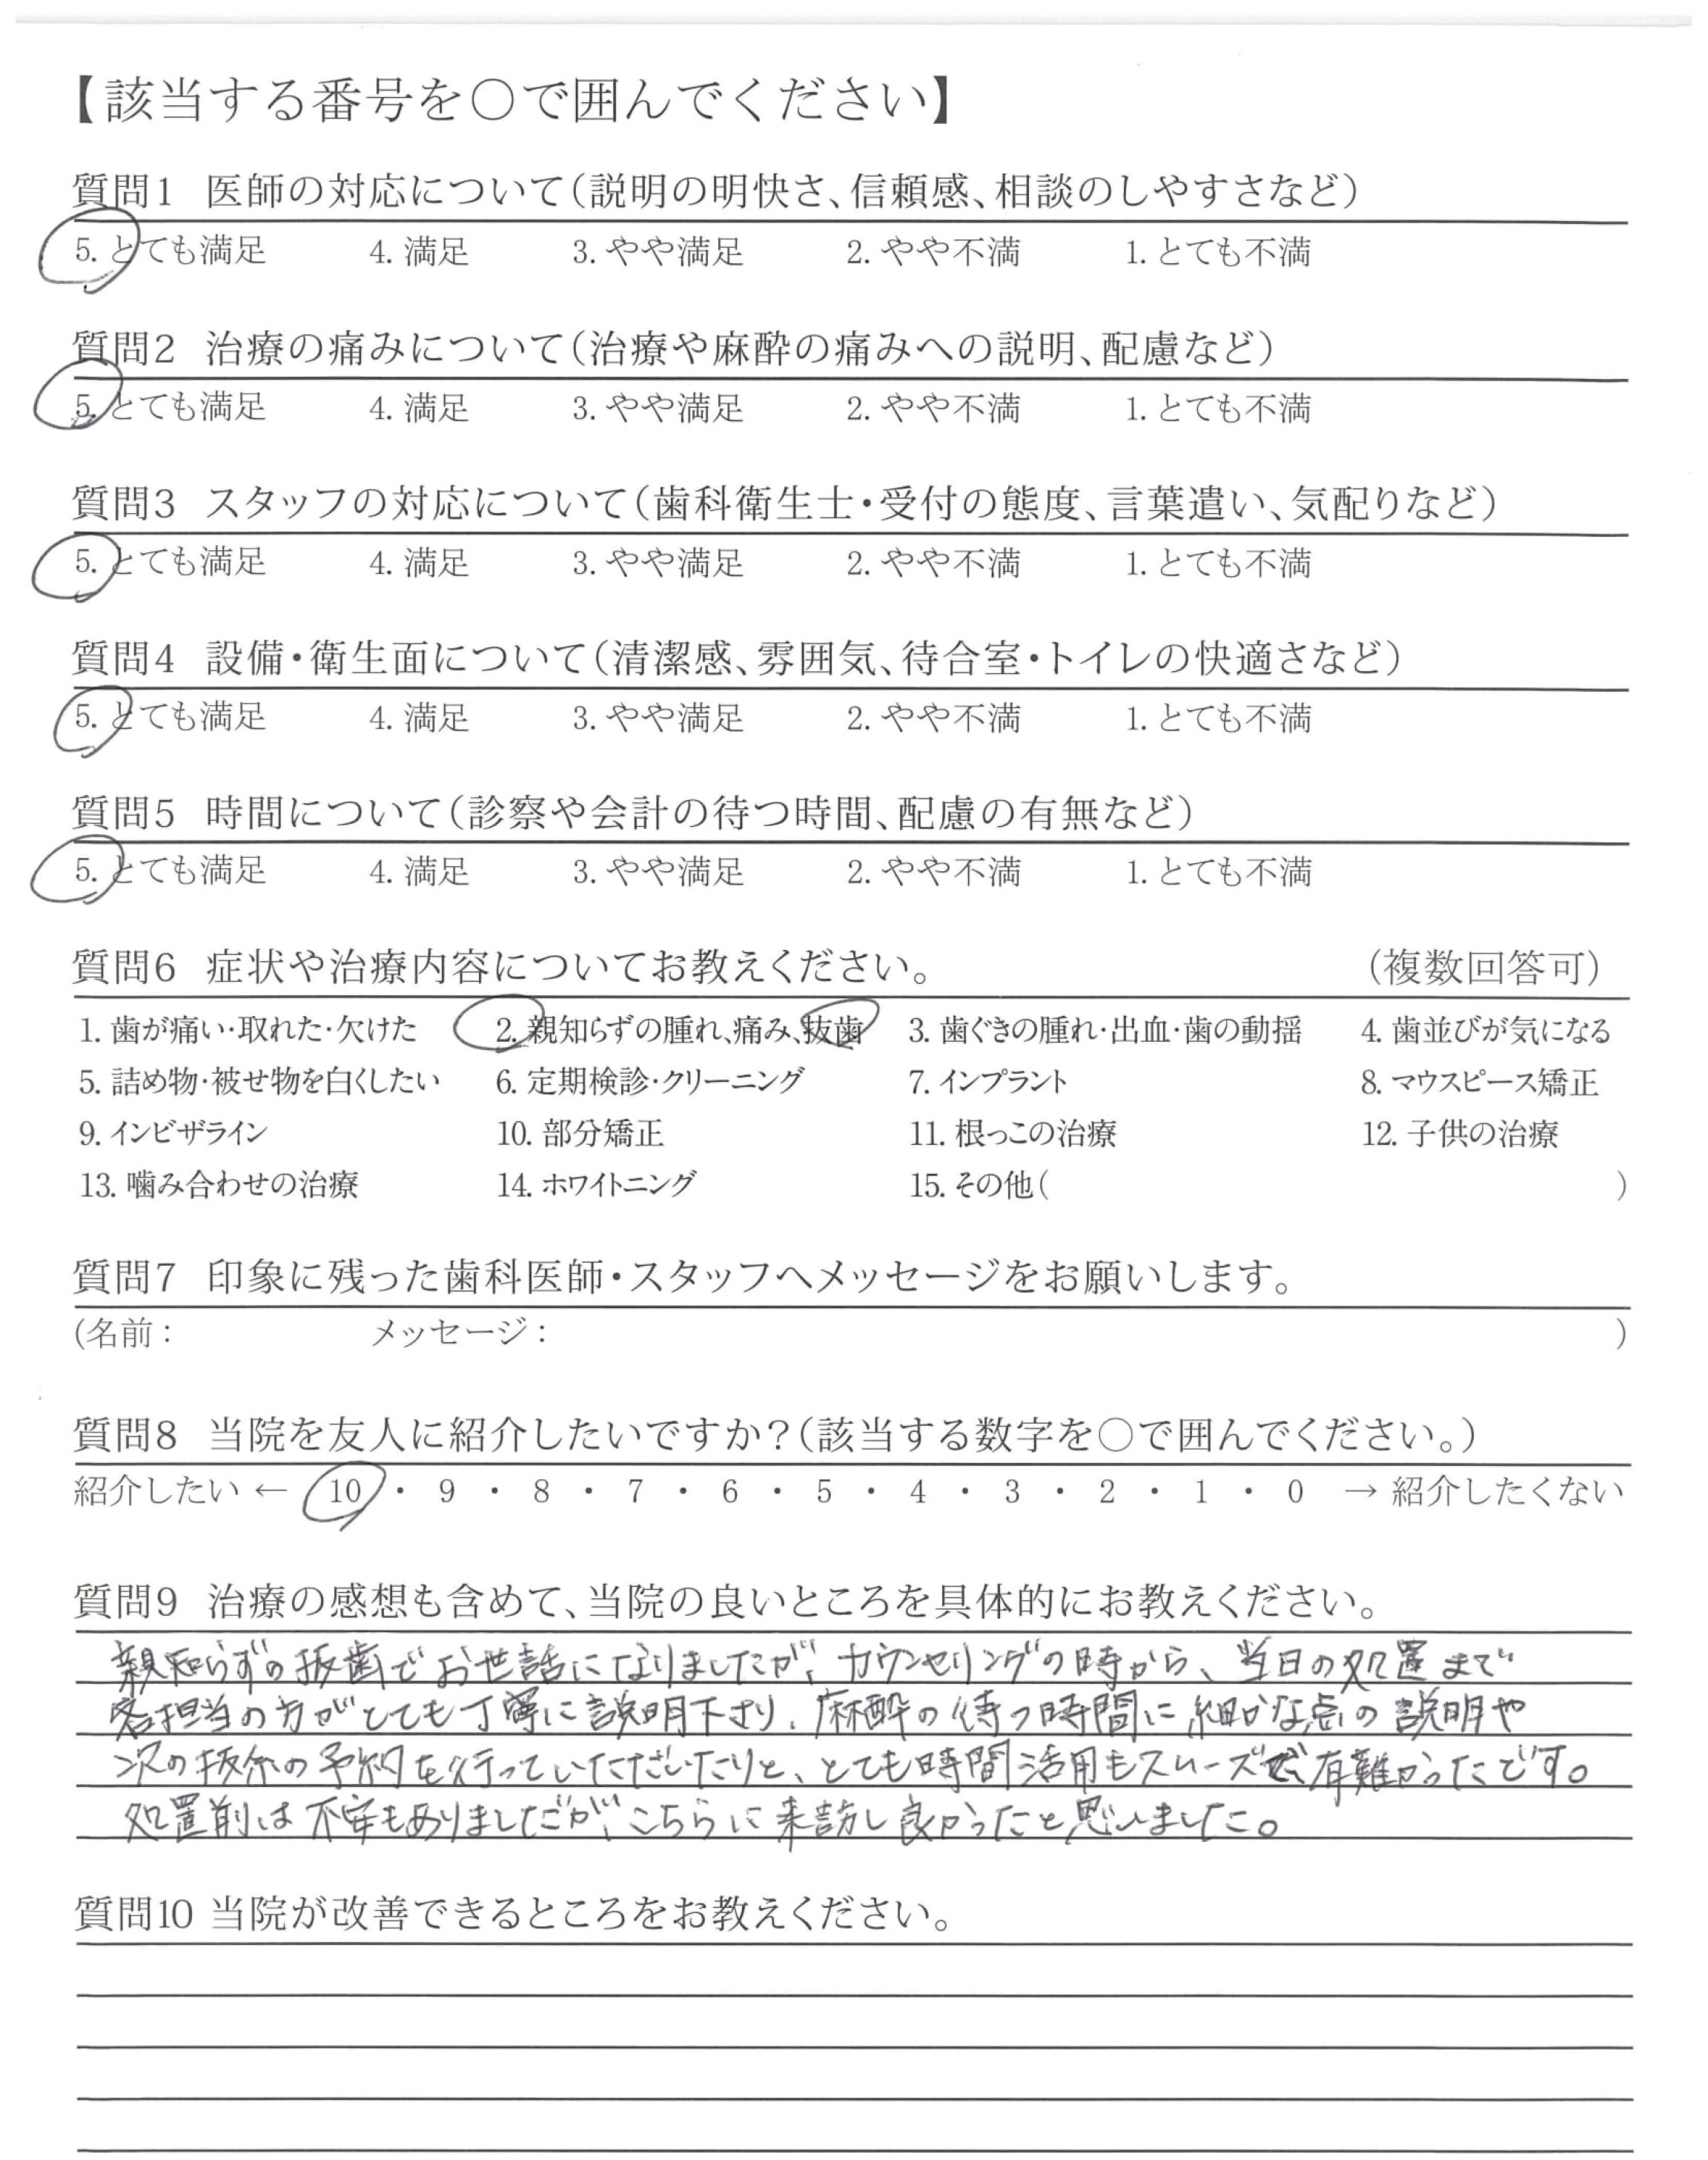 【該当する番号を○で囲んでください】
質問1 医師の対応について(説明の明快さ、信頼感、相談のしやすさなど)
5. とても満足 4. 満足 3. やや満足 2. やや不満 1. とても不満
質問2 治療の痛みについて(治療や麻酔の痛みへの説明、配慮など)
5. とても満足 4. 満足 3. やや満足 2. やや不満 1. とても不満
質問3 スタッフの対応について(歯科衛生士・受付の態度、言葉遣い、気配りなど)
5. とても満足 4. 満足 3. やや満足 2. やや不満 1. とても不満
質問4 設備・衛生面について(清潔感、雰囲気、待合室・トイレの快適さなど)
5. とても満足 4. 満足 3. やや満足 2. やや不満 1. とても不満
質問5 時間について(診察や会計の待つ時間、配慮の有無など)
5. とても満足 4. 満足 3. やや満足 2. やや不満 1. とても不満
質問6 症状や治療内容についてお教えください。 (複数回答可)
1. 歯が痛い・取れた・欠けた 2. 親知らずの腫れ、痛み、抜歯 3. 歯ぐきの腫れ・出血・歯の動揺 4. 歯並びが気になる
5. 詰め物・被せ物を白くしたい 6. 定期検診・クリーニング 7. インプラント 8. マウスピース矯正
9. インビザライン 10. 部分矯正 11. 根っこの治療 12. 子供の治療
13. 噛み合わせの治療 14. ホワイトニング 15. その他( )
質問7 印象に残った歯科医師・スタッフへメッセージをお願いします。
(名前: メッセージ: )
質問8 当院を友人に紹介したいですか?(該当する数字を○で囲んでください。)
紹介したい ← 10 ・ 9 ・ 8 ・ 7 ・ 6 ・ 5 ・ 4 ・ 3 ・ 2 ・ 1 ・ 0 → 紹介したくない
質問9 治療の感想も含めて、当院の良いところを具体的にお教えください。
親知らずの抜歯でお世話になりましたが、カウンセリングの時から、当日の処置まで
各担当の方がとても丁寧に説明下さり、麻酔の待つ時間に細かな点の説明や
次の抜糸の予約を行っていただいたりと、とても時間活用もスムーズで有難かったです。
処置前は不安もありましたが、こちらに来訪し良かったと思いました。
質問10 当院が改善できるところをお教えください。